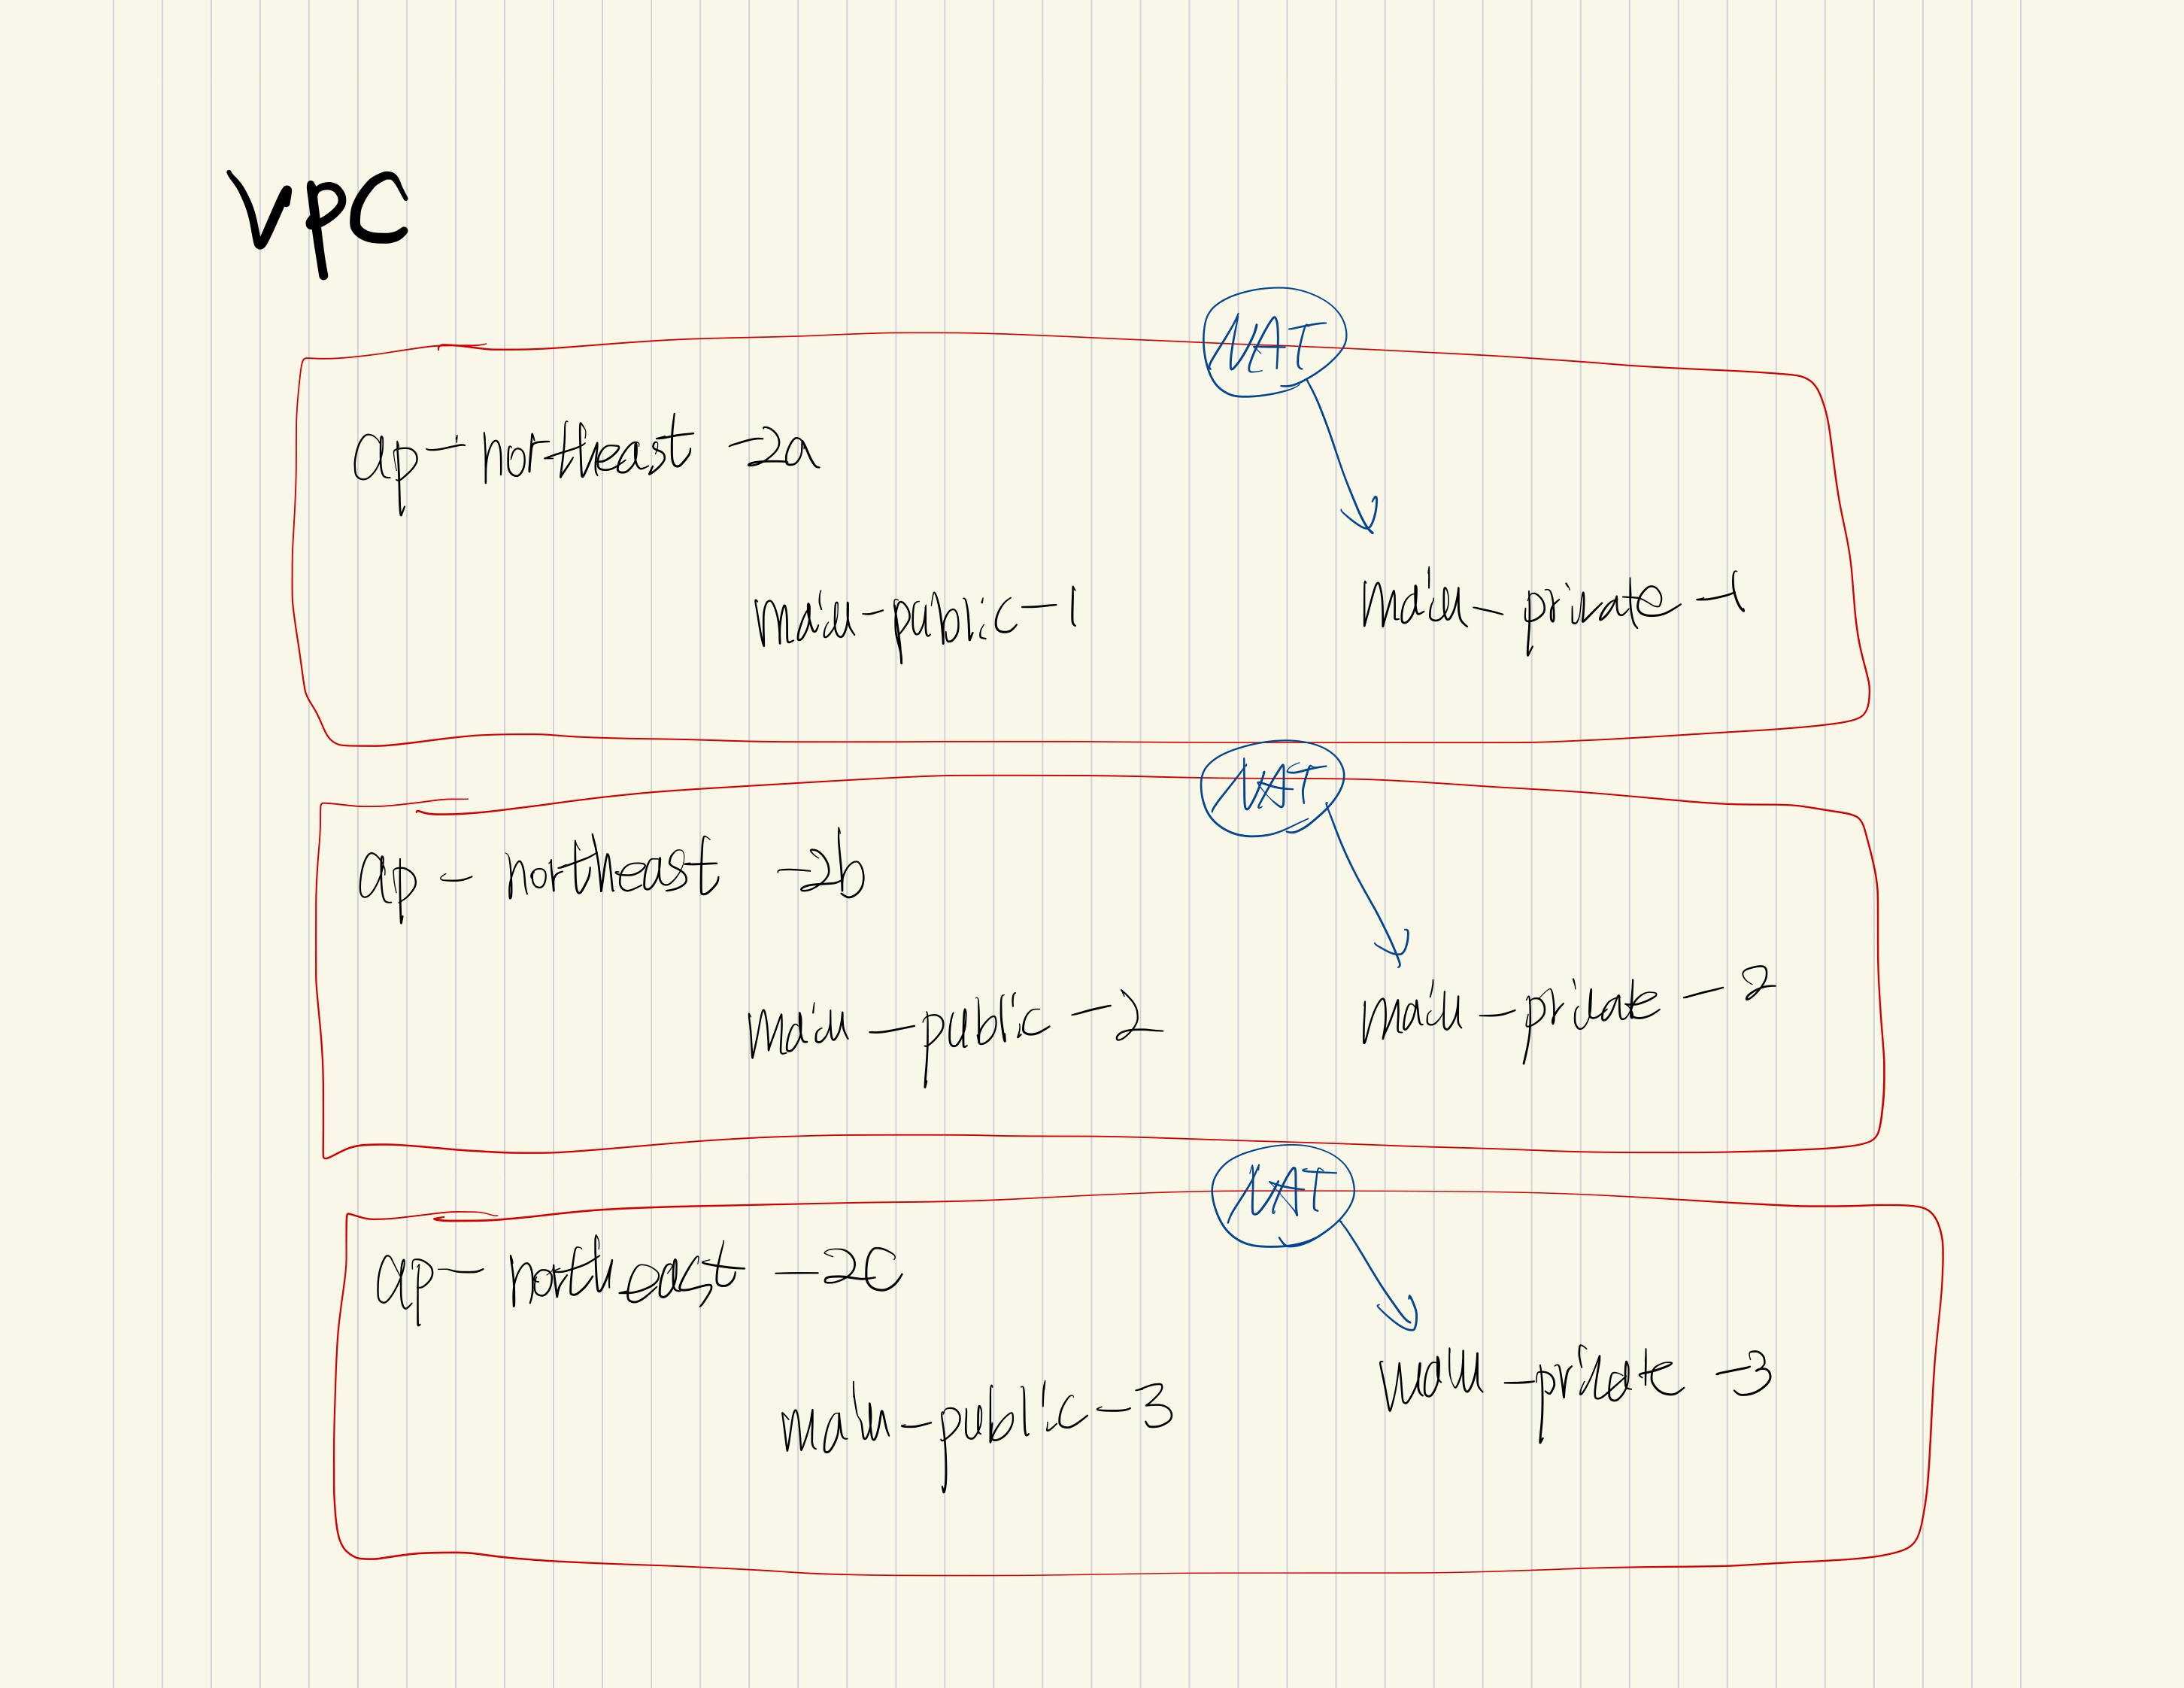 VPC
NAT
ap-northeast-2a
main-public-1
main-private-1
NAT
ap-northeast-2b
main-public-2
main-private-2
NAT
ap-northeast-2c
main-public-3
main-private-3